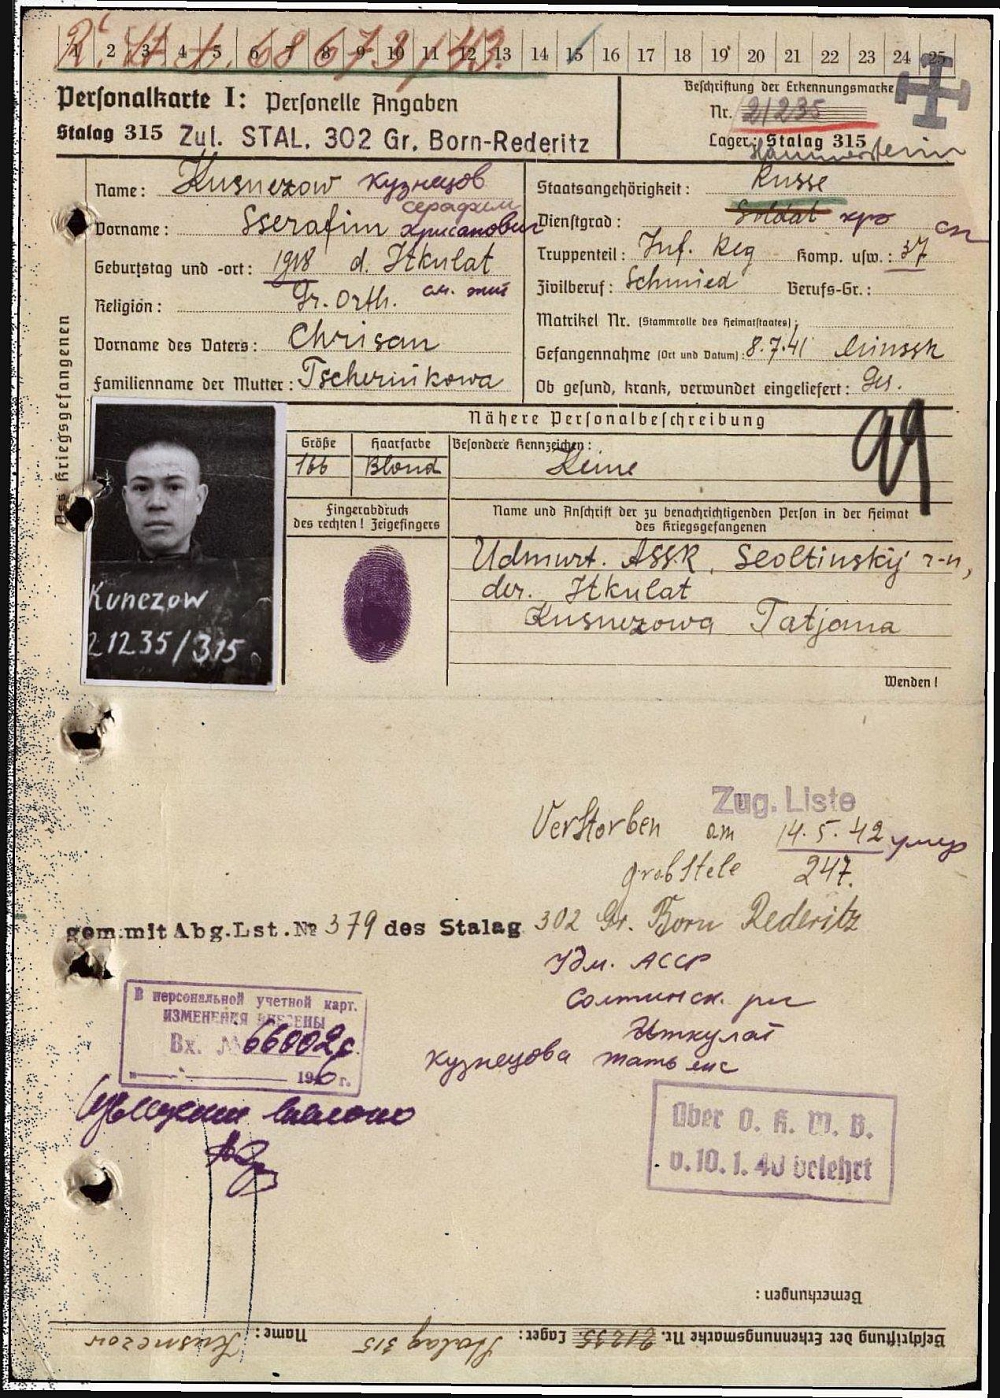 1 2 3 4 5 6 7 8 9 10 11 12 13 14 15 16 17 18 19 20 21 22 23 24 25
68673/43.
Personalkarte I: Personelle Angaben
Stalag 315 Zul. STAL. 302 Gr. Born-Rederitz
Beschriftung der Erkennungsmarke
Nr. 21235
Lager: Stalag 315
Hammerstein
Des Kriegsgefangenen
Name: Kusnezow Кузнецов
Серафим
Vorname: Sserafim Хрисанович
Geburtstag und -ort: 1918 d. Itkulat
Religion: Gr. Orth.
Vorname des Vaters: Chrisan
Familienname der Mutter: Tschernikowa
Staatsangehörigkeit: Russe
Dienstgrad: Soldat кро
Truppenteil: Inf. Reg Komp. usw.: 37
Zivilberuf: Schmied Berufs-Gr.:
Matrikel Nr. (Stammrolle des Heimatstaates):
Gefangennahme (Ort und Datum): 8.7.41 Minssk
Ob gesund, krank, verwundet eingeliefert: Ges.
Nähere Personalbeschreibung
Größe Haarfarbe Besondere Kennzeichen:
166 Blond Keine
Fingerabdruck
des rechten! Zeigefingers
Name und Anschrift der zu benachrichtigenden Person in der Heimat
des Kriegsgefangenen
Udmurt. ASSR, Seoltinskij r-n,
der. Itkulat
Kusnezowa Tatjana
Wenden!
Kunezow
21235/315
Zug. Liste
Verstorben am 14.5.42 умер
grabstele 247.
gem.mit Abg.Lst.№ 379 des Stalag 302 Gr. Born Rederitz
Удм. АССР
Солтинск. рн
Иткулат
Кузнецова
В персональной учетной карт.
ИЗМЕНЕНИЯ ВНЕСЕНЫ
Вх. № 66002с
1946 г.
Über O. K. W. B.
v. 10. 1. 40 belehrt
Bemerkungen:
Beschriftung der Erkennungsmarke Nr. 21235 Lager: Stalag 315 Name: Kusnezow